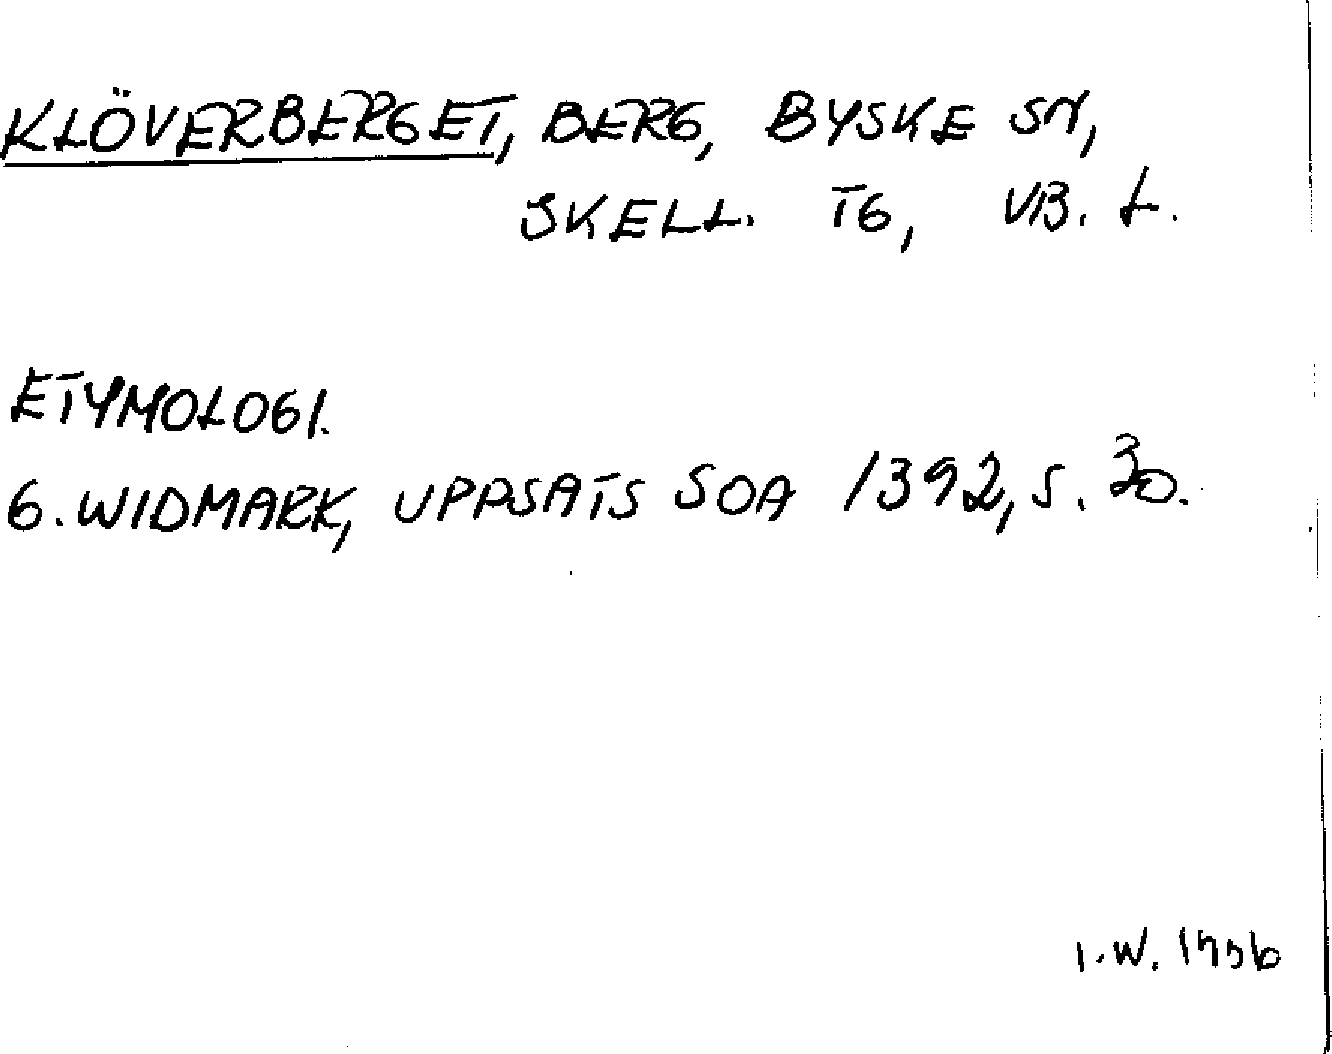 KLÖVERBERGET, BERG, BYSKE SN,
SKELL. TG, VB. L.
ETYMOLOGI.
G. WIDMARK, UPPSATS SOA 1392, S. 30.
I.W.